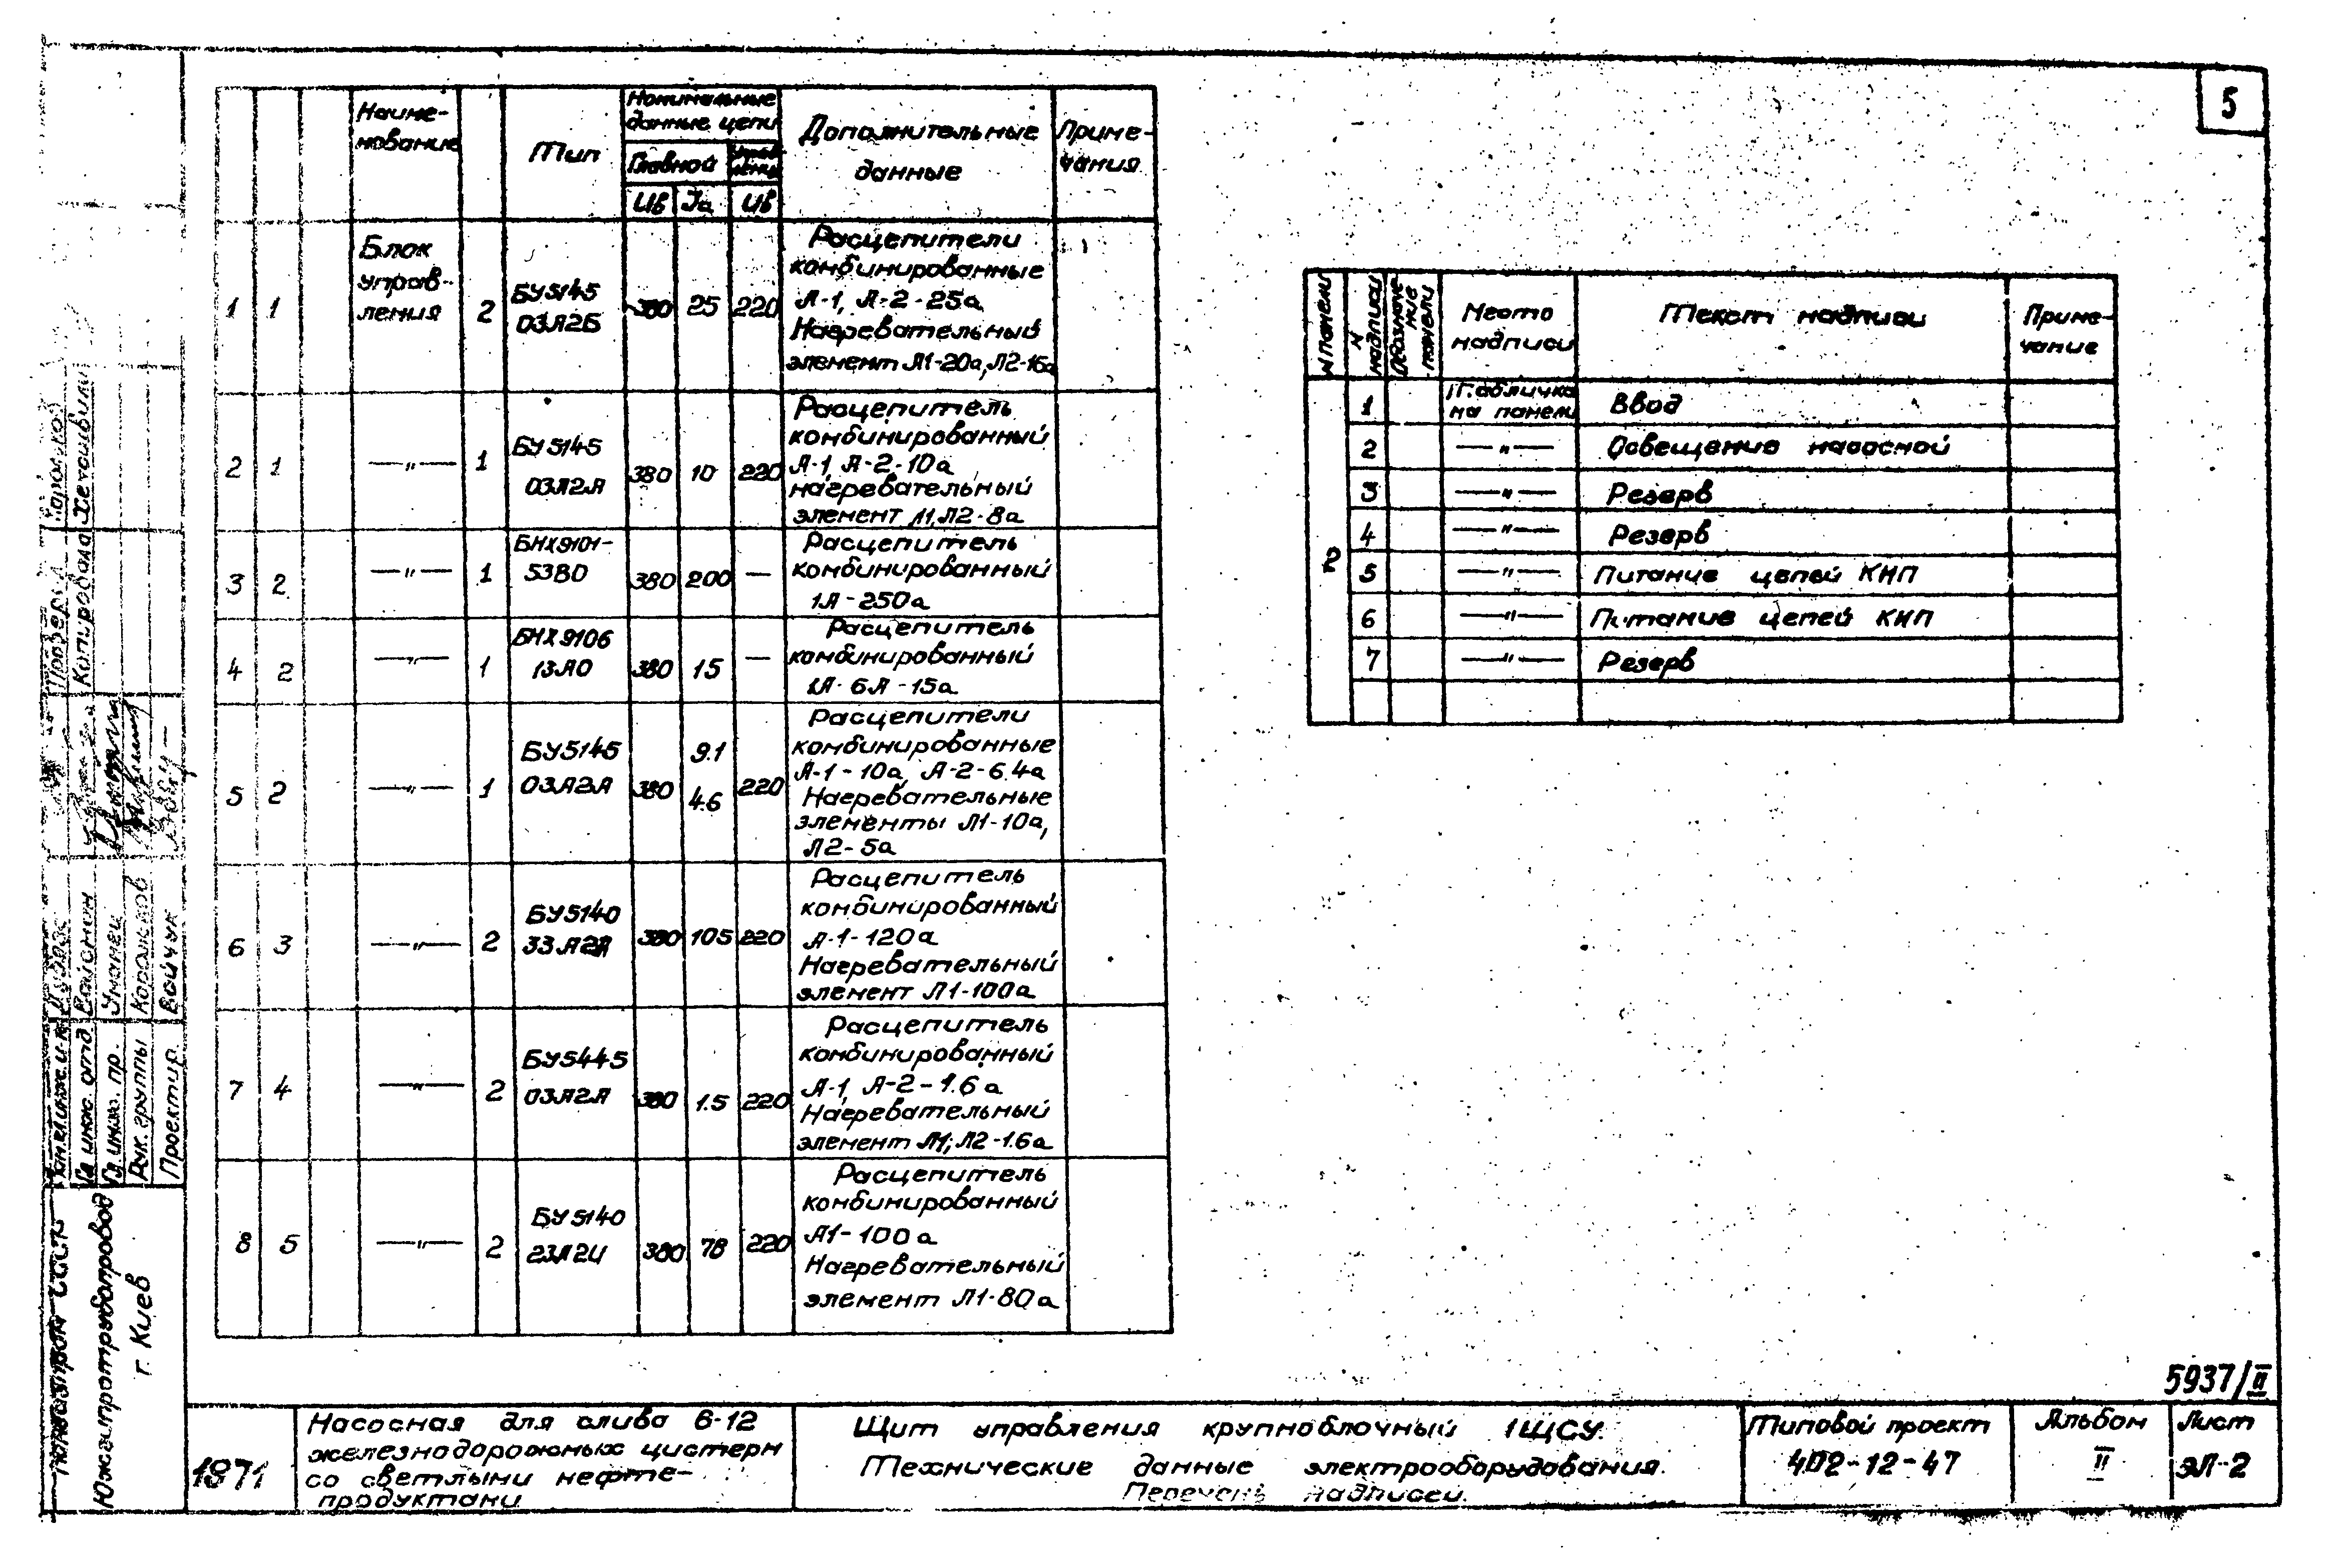 5
Наиме-
нование
Тип
Номинальные
данные цепи
Главной
Управ-
ления
Uв Jа Uв
Дополнительные
данные
Приме-
чания
1 1 Блок
управ-
ления 2 БУ5145
03А2Б 380 25 220
Расцепители
комбинированные
А-1, А-2-25а
Нагревательный
элемент Л1-20а, Л2-16а
2 1 —"— 1 БУ5145
03А2А 380 10 220
Расцепитель
комбинированный
А-1, А-2-10а
нагревательный
элемент Л1, Л2-8а
3 2 —"— 1 БНХ9101-
53ВО 380 200 —
Расцепитель
комбинированный
1А-250а
4 2 —"— 1 БНХ9106
13АО 380 15 —
Расцепитель
комбинированный
1А-6А-15а
5 2 —"— 1 БУ5145
03А2А 380 9.1
4.6 220
Расцепители
комбинированные
А-1-10а, А-2-6.4а
Нагревательные
элементы Л1-10а,
Л2-5а
6 3 —"— 2 БУ5140
33А2Я 380 105 220
Расцепитель
комбинированный
А-1-120а
Нагревательный
элемент Л1-100а
7 4 —"— 2 БУ5445
03А2А 380 1.5 220
Расцепитель
комбинированный
А-1, А-2-1.6а
Нагревательный
элемент Л1, Л2-1.6а
8 5 —"— 2 БУ5140
23А2Ц 380 78 220
Расцепитель
комбинированный
А1-100а
Нагревательный
элемент Л1-80а
N панели
N надписи
Обозначе-
ние
панели
Место
надписи
Текст надписи
Приме-
чание
2
1 Табличка
на панели Ввод
2 —"— Освещение насосной
3 —"— Резерв
4 —"— Резерв
5 —"— Питание цепей КИП
6 —"— Питание цепей КИП
7 —"— Резерв
Проверил
Копировала
Гл. инж. отд
Гл. инж. пр. Уманец
Рук. группы
Проектир. Войчук
Южгипротрубопровод
г. Киев
5937/II
1971
Насосная для слива 6-12
железнодорожных цистерн
со светлыми нефте-
продуктами
Щит управления крупноблочный 1ЩСУ.
Технические данные электрооборудования.
Перечень надписей.
Типовой проект
402-12-47
Альбом
II
Лист
ЭЛ-2